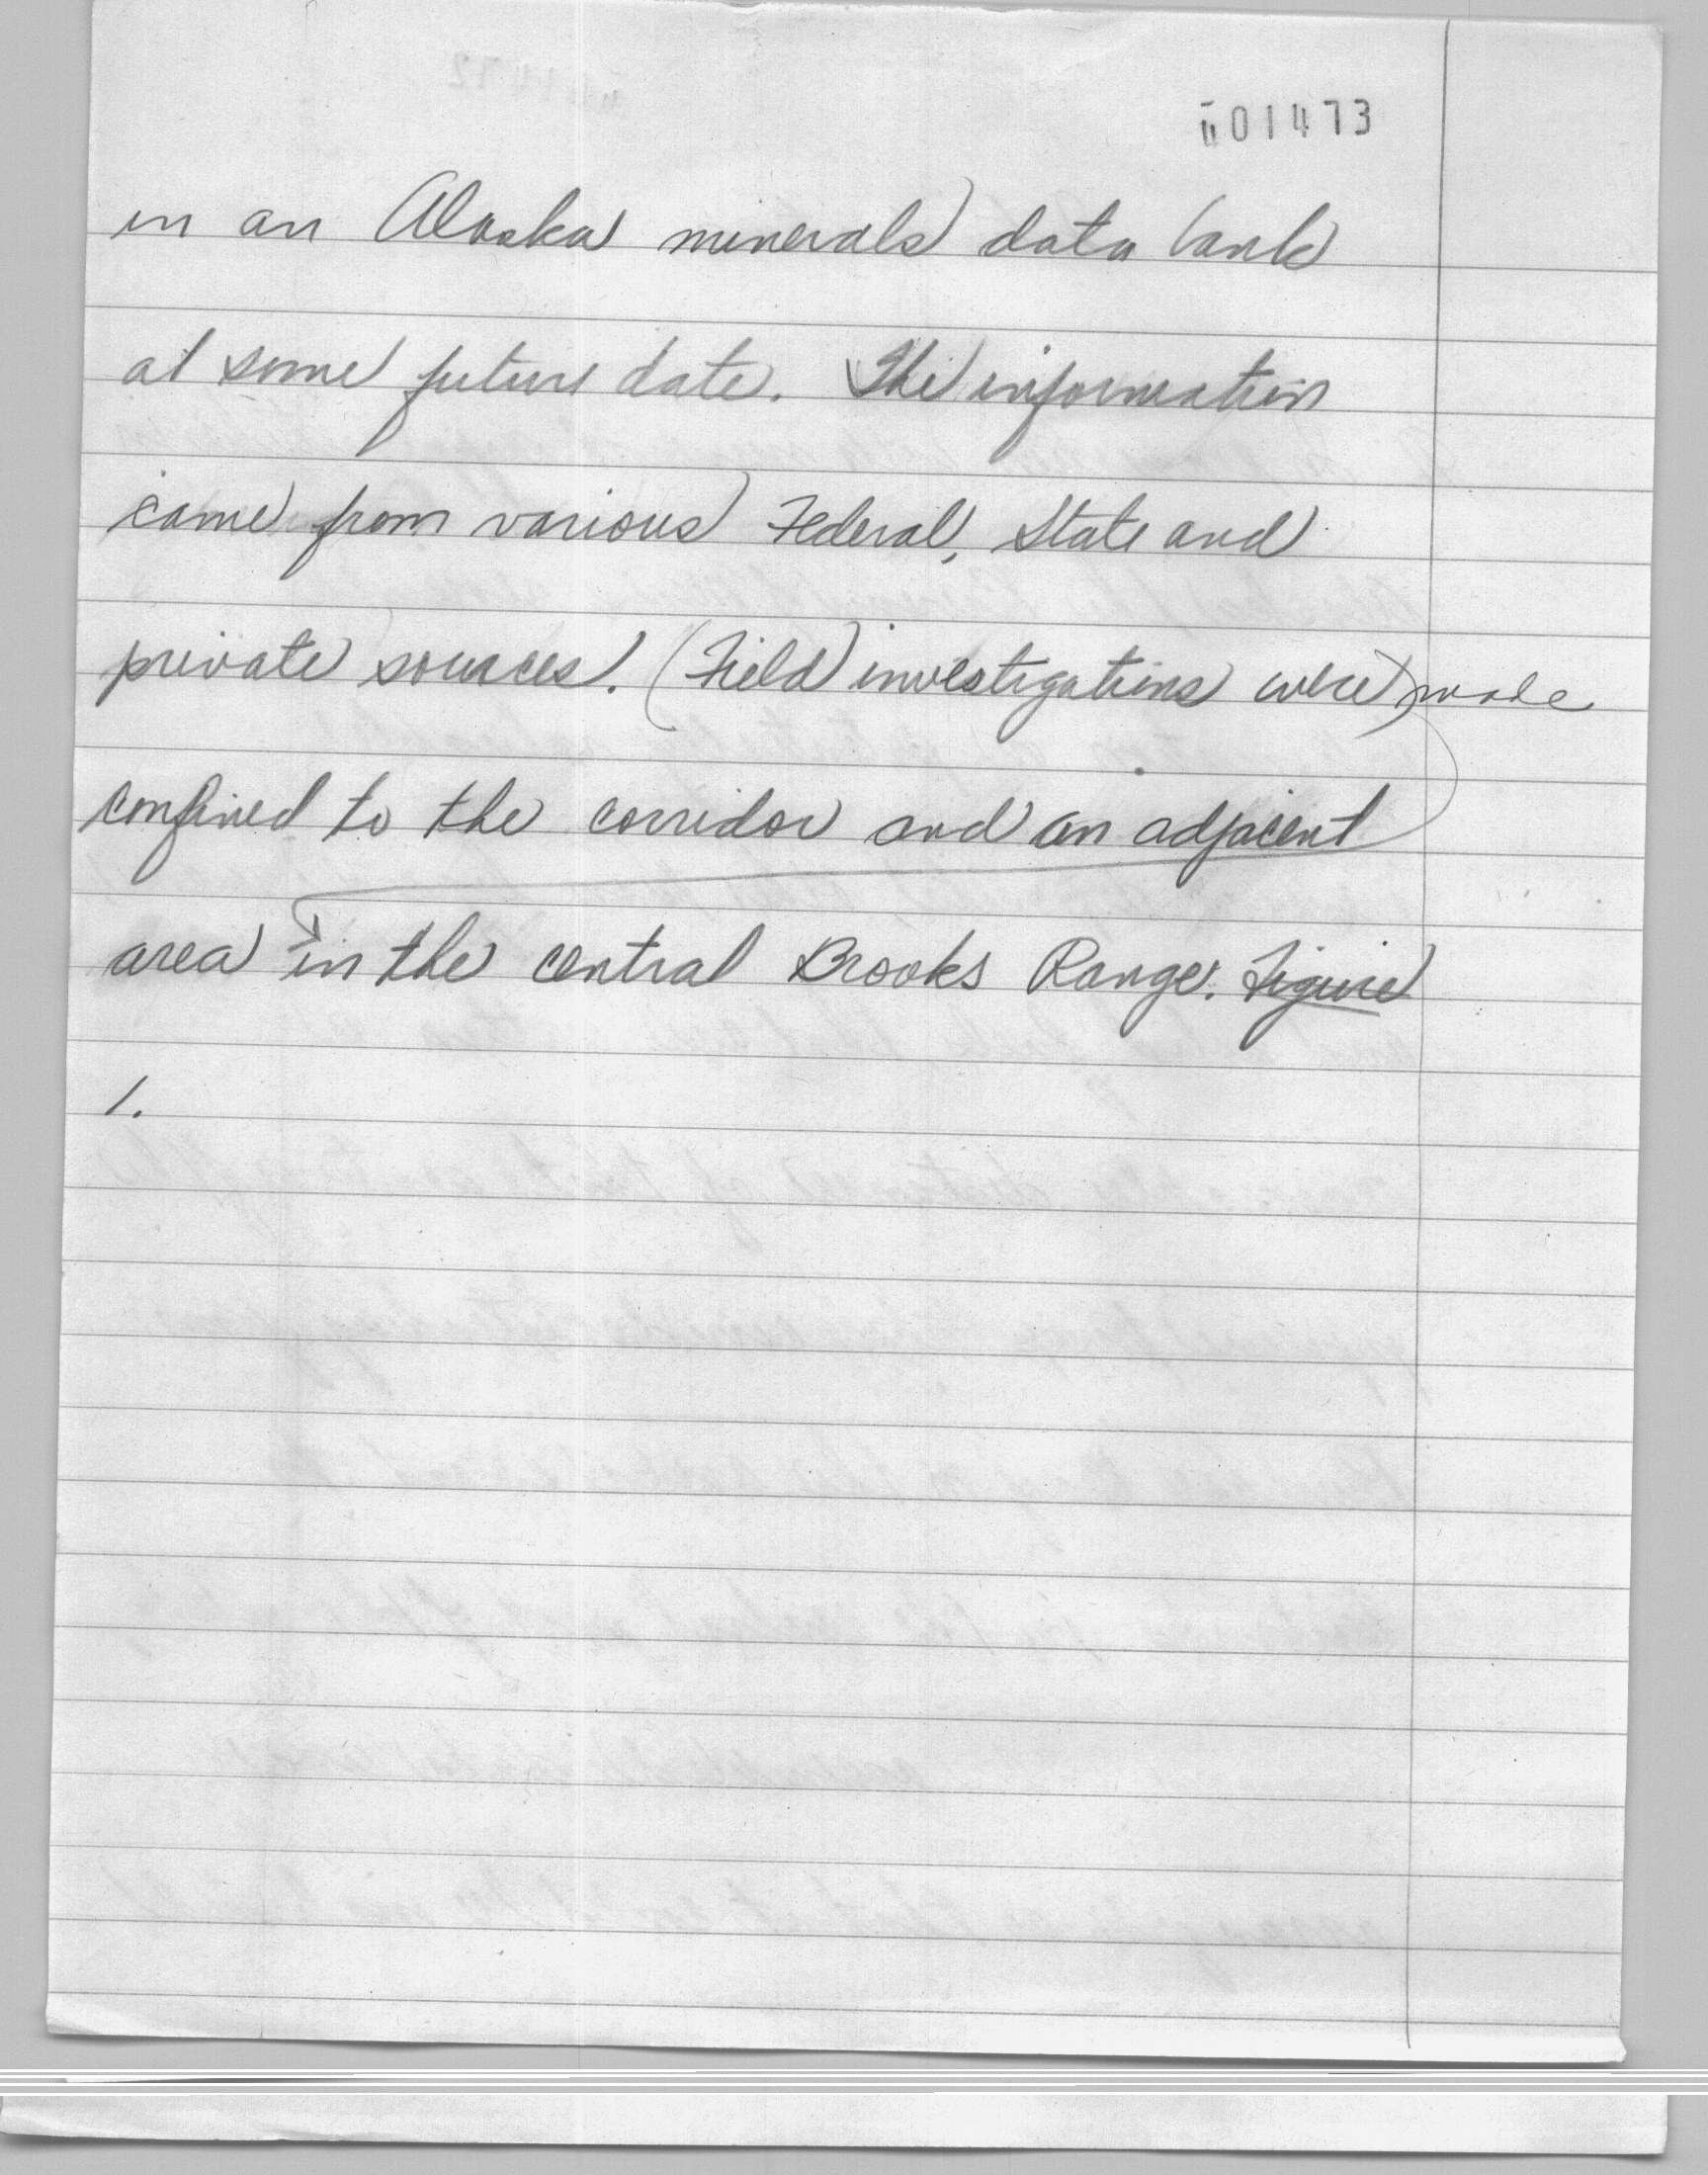 401473
in an Alaska minerals data bank
at some future date. The information
came from various Federal, State and
private sources. (Field investigations were) made
confined to the corridor and an adjacent
area in the central Brooks Range. Figure
1.